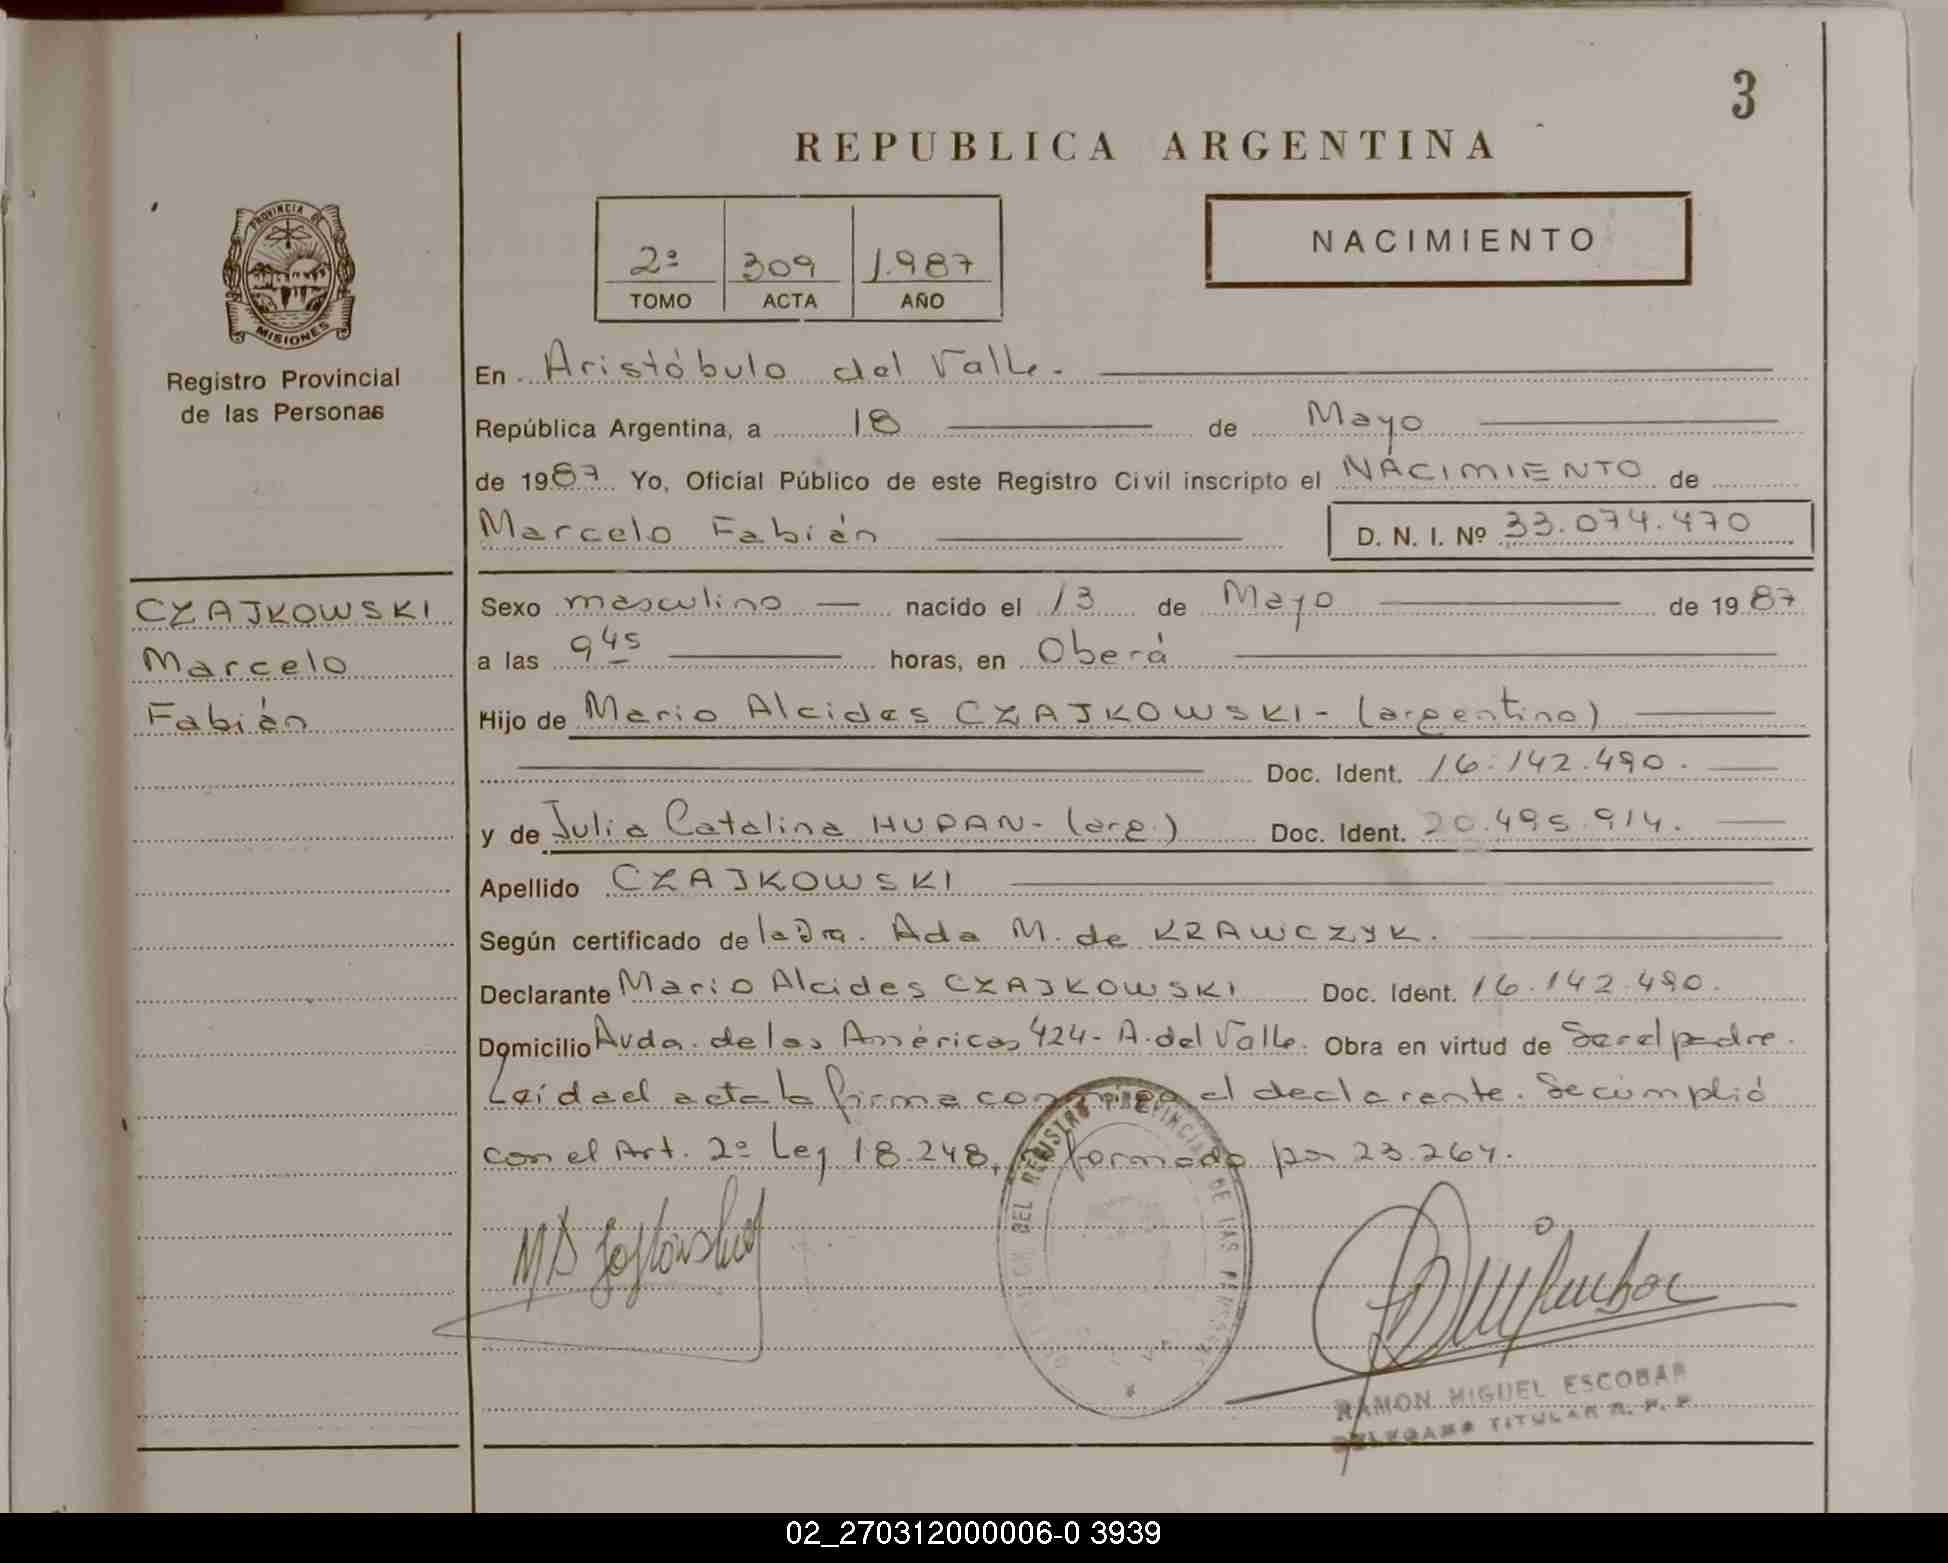 3
REPUBLICA ARGENTINA
PROVINCIA DE
MISIONES
2º 309 1.987
TOMO ACTA AÑO
NACIMIENTO
Registro Provincial
de las Personas
CZAJKOWSKI
Marcelo
Fabián
En Aristóbulo del Valle.
República Argentina, a 18 de Mayo
de 1987 Yo, Oficial Público de este Registro Civil inscripto el NACIMIENTO de
Marcelo Fabián D. N. I. Nº 33.074.470
Sexo masculino nacido el 13 de Mayo de 1987
a las 9 45 horas, en Oberá
Hijo de Mario Alcides CZAJKOWSKI - (argentino)
Doc. Ident. 16.142.490.
y de Julia Catalina HUPAN - (arg.) Doc. Ident. 20.495.914.
Apellido CZAJKOWSKI
Según certificado de la Dra. Ada M. de KRAWCZYK.
Declarante Mario Alcides CZAJKOWSKI Doc. Ident. 16.142.490.
Domicilio Avda. de las Américas 424 - A. del Valle. Obra en virtud de Ser el padre.
Leída el acta la firma conmigo el declarante. Se cumplió
con el Art. 2º Ley 18.248, formado por 23.264.
DEL REGISTRO PROVINCIAL DE LAS PERSONAS
RAMON MIGUEL ESCOBAR
DELEGADO TITULAR R. P. P.
02_270312000006-0 3939